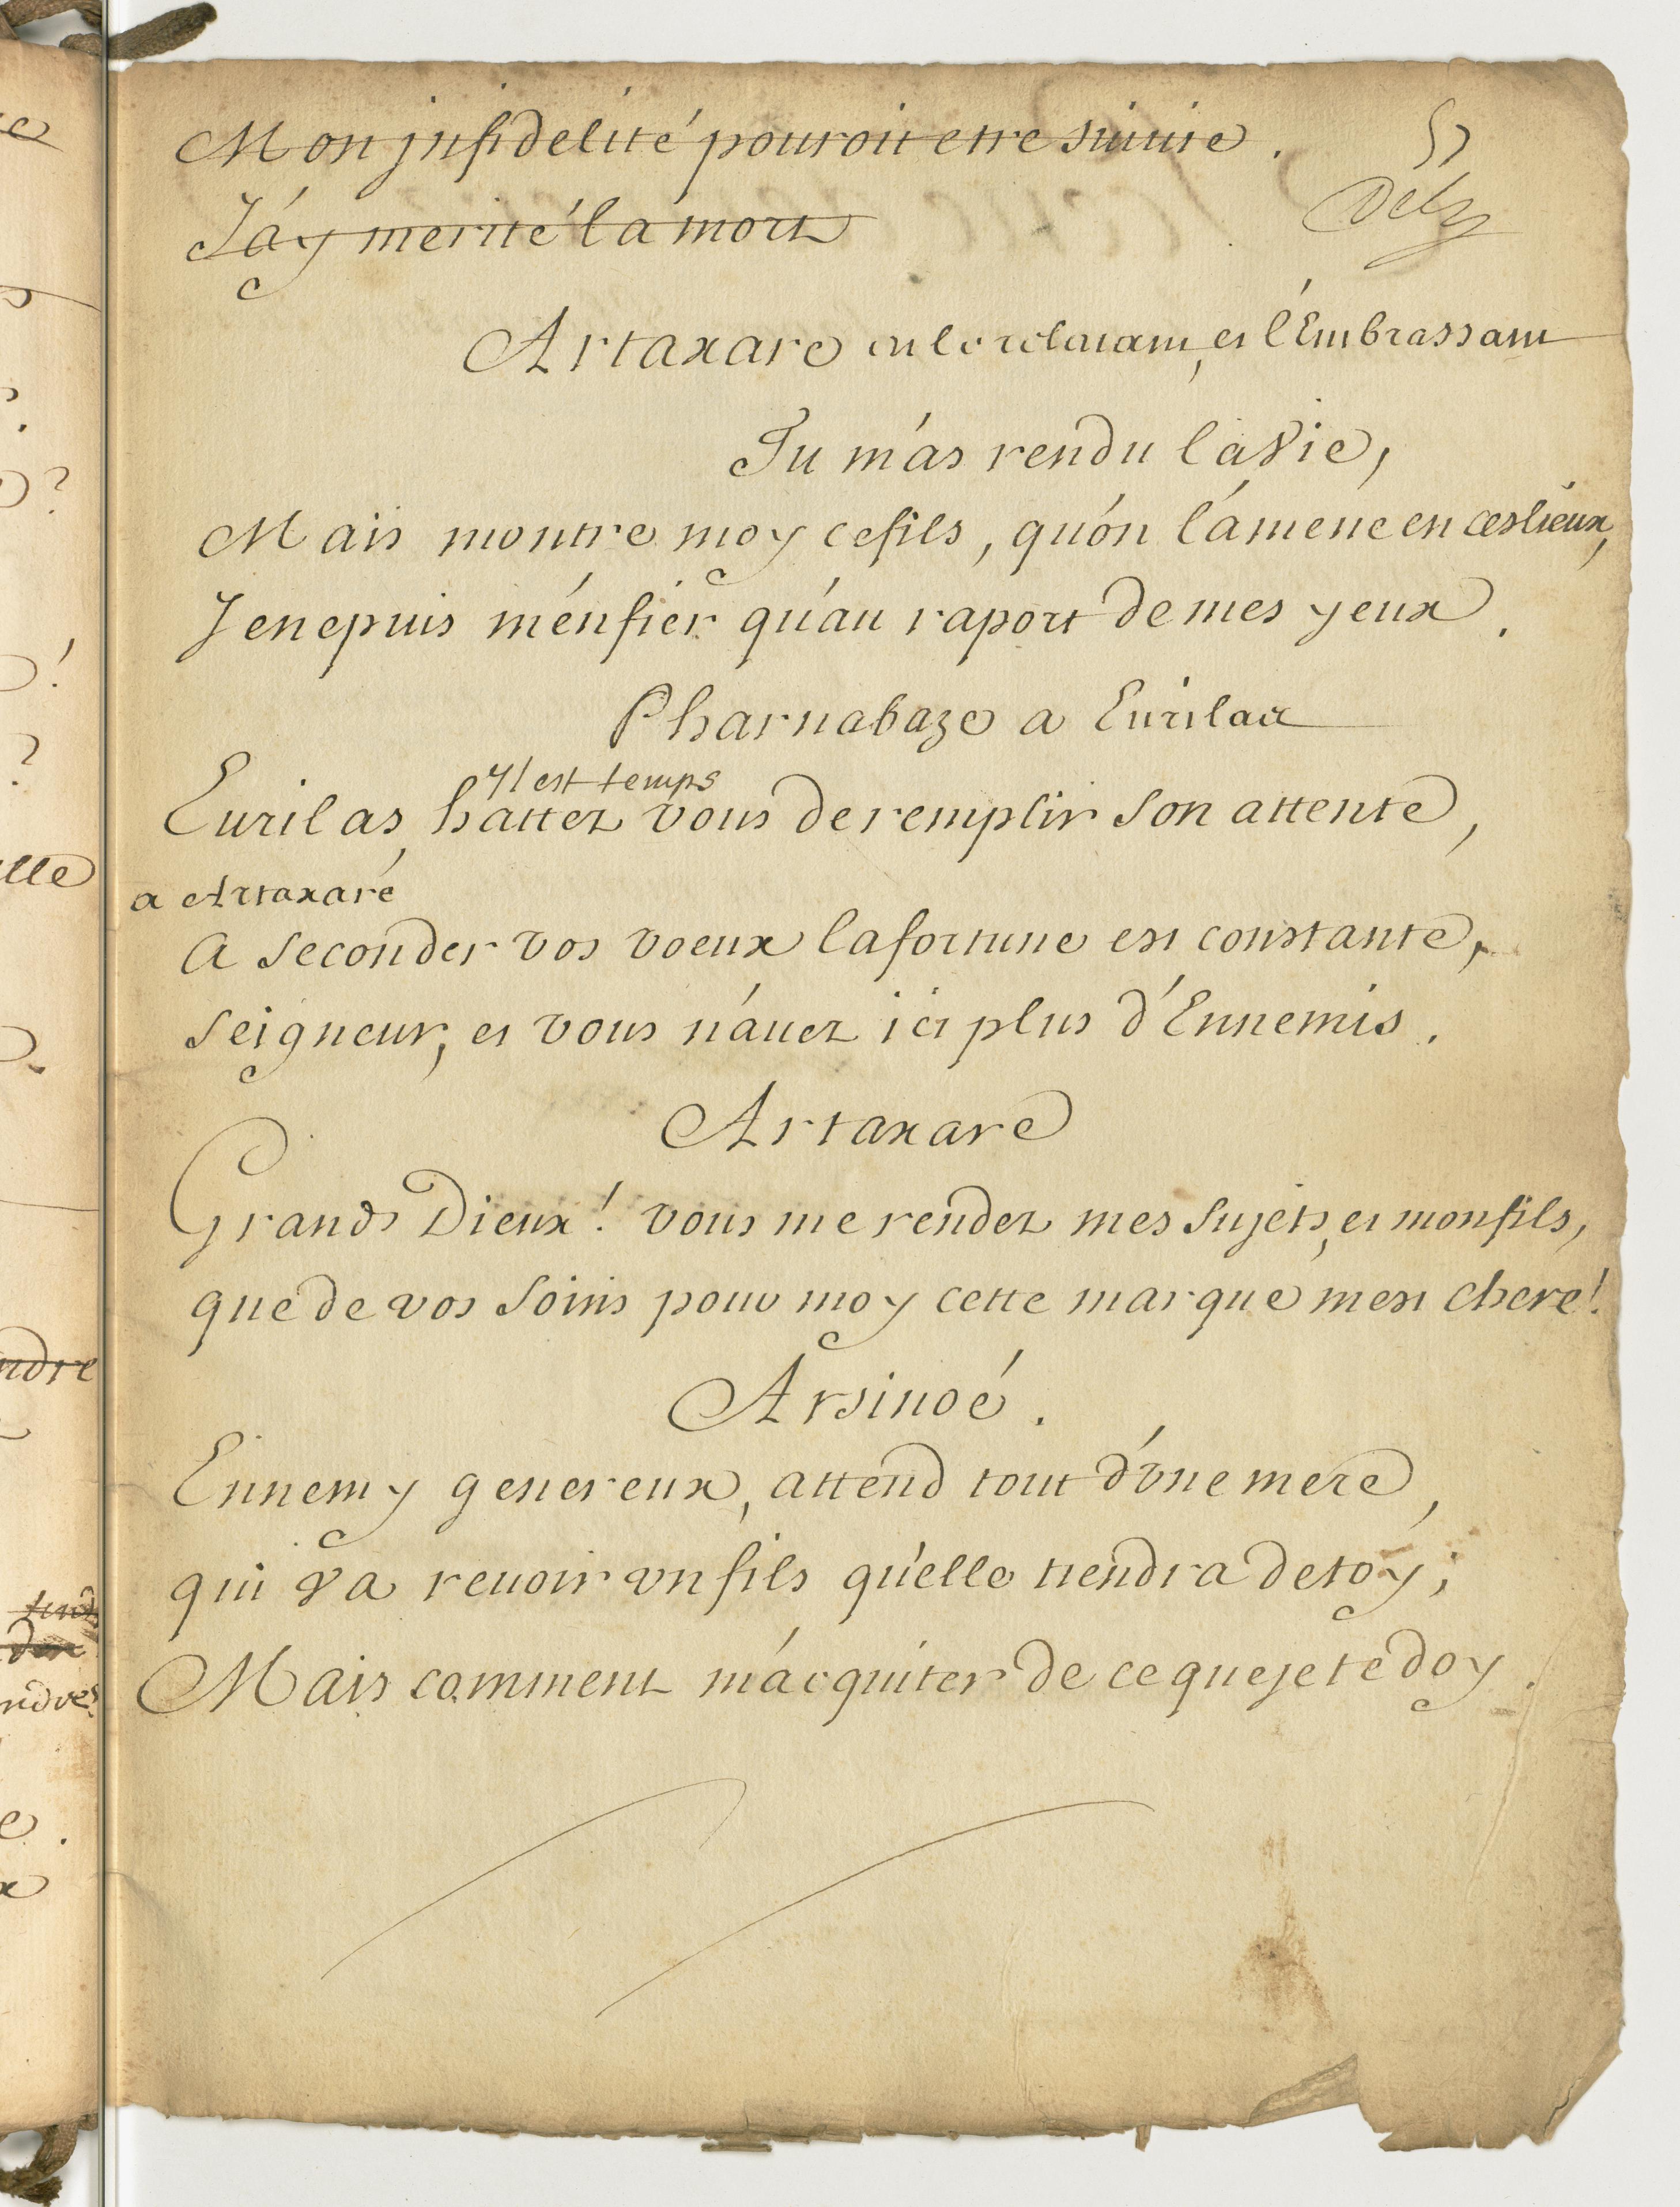 Mon jnfidelité pouroit etre suiuie.
57
J'ay merité la mort
Artaxare en le releuant, et l'Embrassant
Tu m'as rendu la Vie,
Mais montre moy ce fils, qu'on l'amene en ces lieux,
Je ne puis m'en fier qu'au raport de mes yeux.
Pharnabaze a Eurilas
yl est temps
Eurilas, hattez vous de remplir son attente,
a Artaxare
A seconder vos voeux la fortune est constante,
Seigneur, et vous n'auez ici plus d'Ennemis.
Artaxare
Grands Dieux! vous me rendez mes sujets, et mon fils,
que de vos soins pour moy cette marque m'est chere!
Arsinoé.
Ennemy genereux, attend tout d'vne mere,
qui va reuoir vn fils qu'elle tiendra de toy;
Mais comment m'acquiter de ce que je te doy.